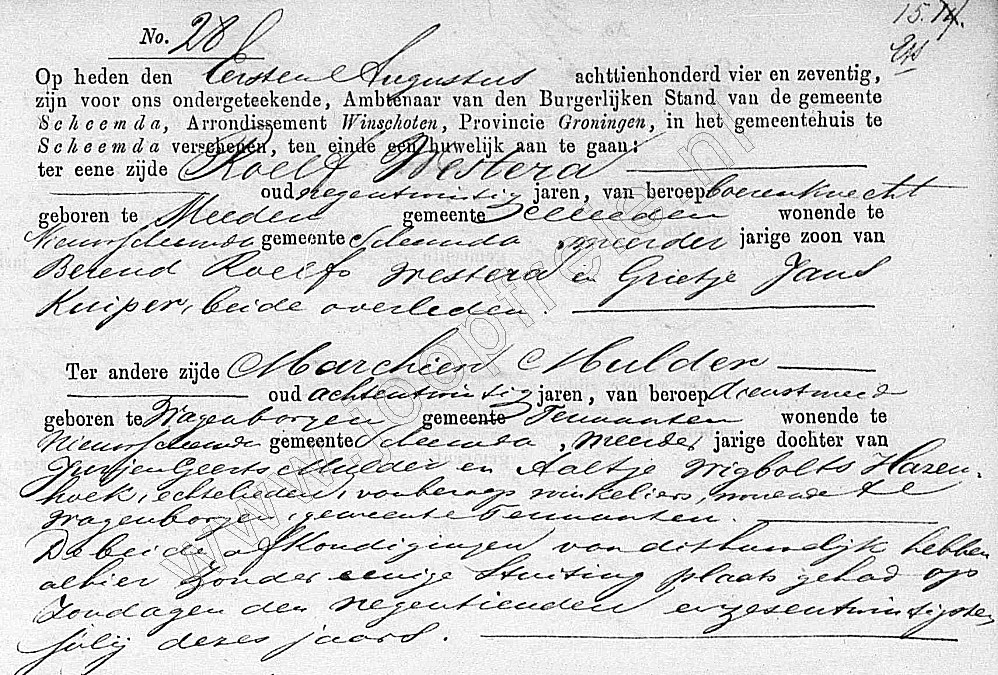 15.
No. 28
Op heden den Eersten Augustus achttienhonderd vier en zeventig,
zijn voor ons ondergeteekende, Ambtenaar van den Burgerlijken Stand van de gemeente
Scheemda, Arrondissement Winschoten, Provincie Groningen, in het gemeentehuis te
Scheemda verschenen, ten einde een huwelijk aan te gaan:
ter eene zijde Roelf Westera
oud negentwintig jaren, van beroep boerenknecht
geboren te Meeden gemeente Meeden wonende te
Nieuwscheemda gemeente Scheemda, meerder jarige zoon van
Berend Roelfs Westera en Grietje Jans
Kuiper, beide overleden.
Ter andere zijde Marchien Mulder
oud achtentwintig jaren, van beroep dienstmeid
geboren te Wagenborgen gemeente Termunten wonende te
Nieuwscheemda gemeente Scheemda, meerder jarige dochter van
Jurjen Geerts Mulder en Aaltje Wigbolts Hazen-
hoek, echtelieden, van beroep winkeliers, wonende te
Wagenborgen, gemeente Termunten.
De beide afkondigingen van dit huwelijk hebben
alhier zonder eenige stuiting plaats gehad op
Zondagen den negentienden en zesentwintigsten
july dezes jaars.
www.jooptreia.nl